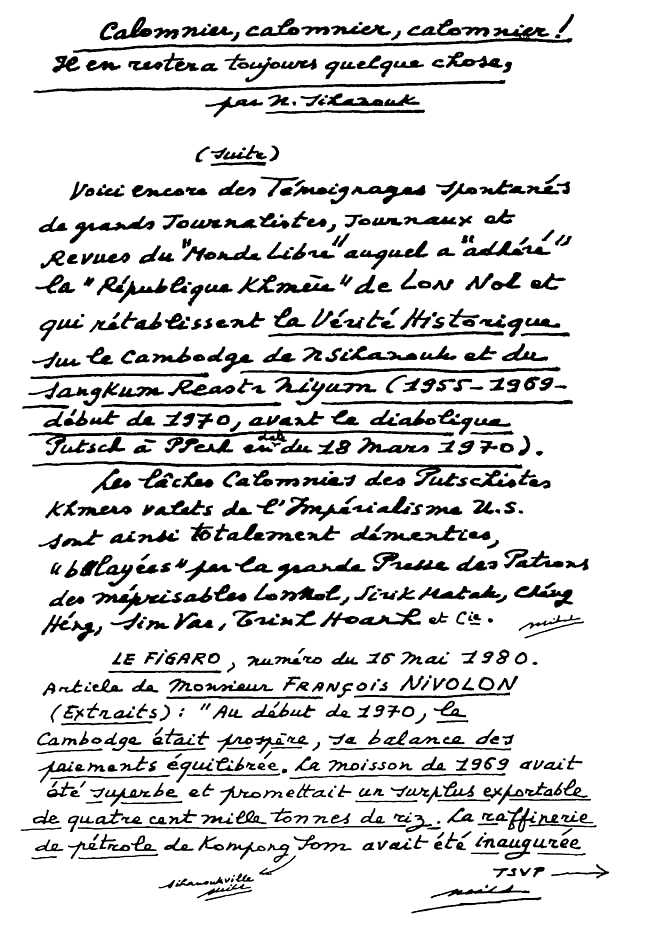 Calomnier, calomnier, calomnier !
Il en restera toujours quelque chose,
par N. Sihanouk
(suite)
Voici encore des Témoignages spontanés
de grands Journalistes, Journaux et
Revues du "Monde Libre" auquel a "adhéré"
la "République Khmère" de Lon Nol et
qui rétablissent la Vérité Historique
sur le Cambodge de N Sihanouk et du
Sangkum Reastr Niyum (1955-1969-
début de 1970, avant le diabolique
Putsch à PPenh en date du 18 Mars 1970).
Les lâches Calomnies des Putschistes
Khmers valets de l'Impérialisme U.S.
sont ainsi totalement démenties,
"balayées" par la grande Presse des Patrons
des méprisables Lon Nol, Sirik Matak, Chéng
Héng, Sim Var, Trinh Hoanh et Cie.
LE FIGARO, numéro du 16 mai 1980.
Article de Monsieur FRANÇOIS NIVOLON
(Extraits) : "Au début de 1970, le
Cambodge était prospère, sa balance des
paiements équilibrée. La moisson de 1969 avait
été superbe et promettait un surplus exportable
de quatre cent mille tonnes de riz. La raffinerie
de pétrole de Kompong Som avait été inaugurée
Sihanoukville
TSVP